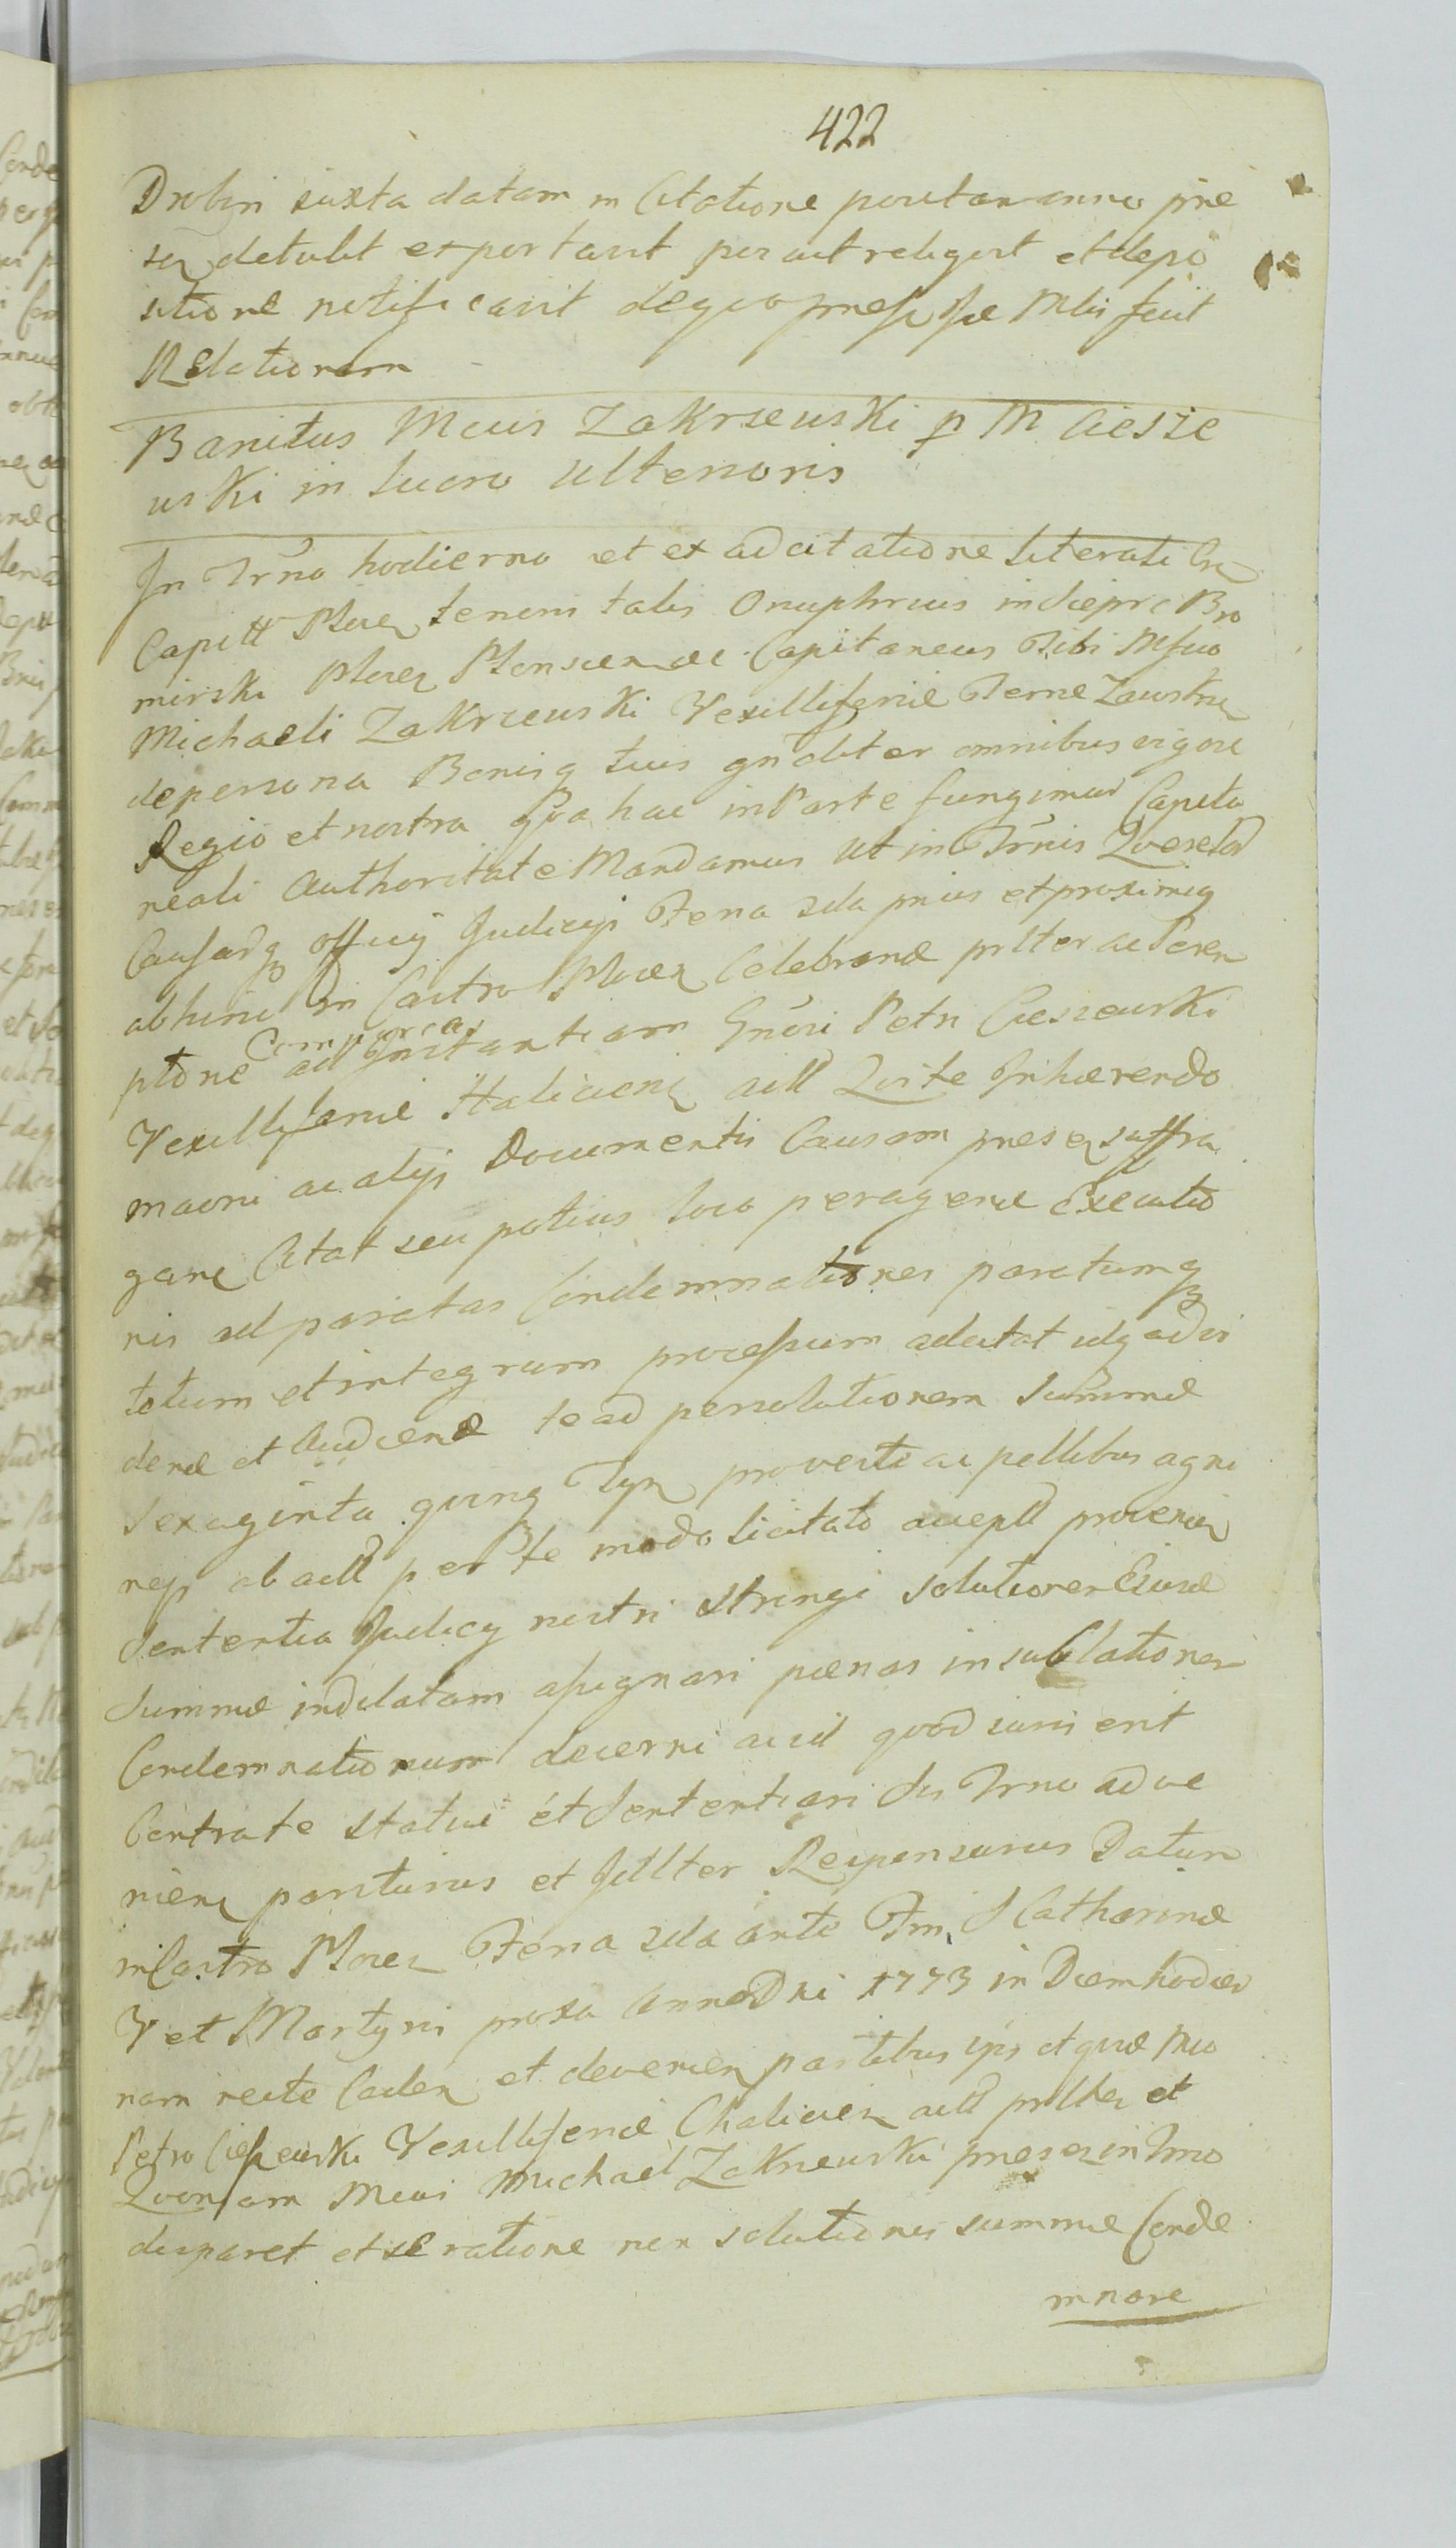 422
Drobin iuxta datam in Citatione positam anno præ
sen detulit exportavit posuit reliquit et depo
sitione notificavit de quo præsse Mtus fecit
Relationem
Banitus Mcus Zakrzewski p M Ciesze
wski in lucro Ulterioris
In Trno hodierno et ex adcitatione literali
Capitt Plocen tenoris talis Onuphrius in Sieprc Bro
mirski Plocen Plonscen etc Capitaneus Tibi Mfco
Michaeli Zakrzewski Vexillifero Terræ Zawskrn
de persona Bonisq tuis gnaliter omnibus vigore
Regio et nostra qua hac in Parte fungimur Capita
neali Authoritate Mandamus ut in Trnis Querelar
Causarq officy Judicyi Feria 2da prius et proximiq
abhinc in Castro Plocen Celebrand prlter ac Perem
ptorie Compareas ad Instantiam Gnosi Petri Cieszewski
Vexilliferi Haliciens act Qui te Inhærendo
maori ac alys Documentis Causam præsen suffra
gan Citat seu potius loco peragend Executio
nis ad paratas Condemnationes paratumq
totum et integrum processum adcitat idq ad vi
dend et Audiend te ad persolutionem Summæ
Sexaginta quinq Tyn pro veste ac pellibus agni
neys ab act per te modo licitato accept provenien
Sententia Judicy nostri stringi solutionem Eiusd
Summæ indilatam assignari pœnas in sublationem
Condemnationum decerni ac id quod iuris erit
Contra te statui et Sententiari Sis Trno adve
niens pariturus et Jdllter Responsurus Datum
in Castro Plocen Feria 2da ante Fm S Catharinæ
V et Martyris proxa Anno Dni 1773 in Diem hodier
nam recte Caden et devenien partibus ipis atque Mco
Petro Cieszewski Vexillifero Chalicien act prllter et
Quoniam Mcus Michael Zakrzewski præsen in Trno
disparet et se ratione non solutionis summæ Conde
mnare